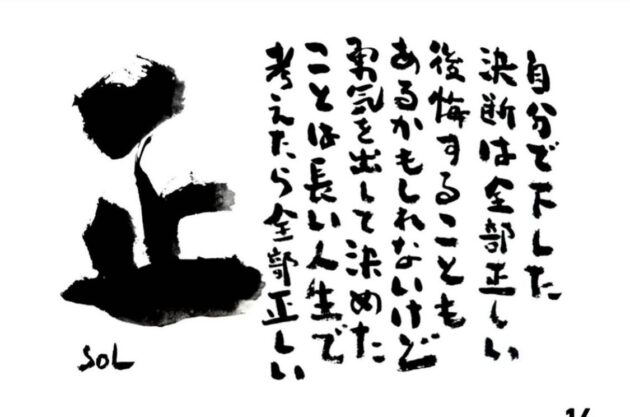 自分で下した
決断は全部正しい
後悔することも
あるかもしれないけど
勇気を出して決めた
ことは長い人生で
考えたら全部正しい
正
SOL